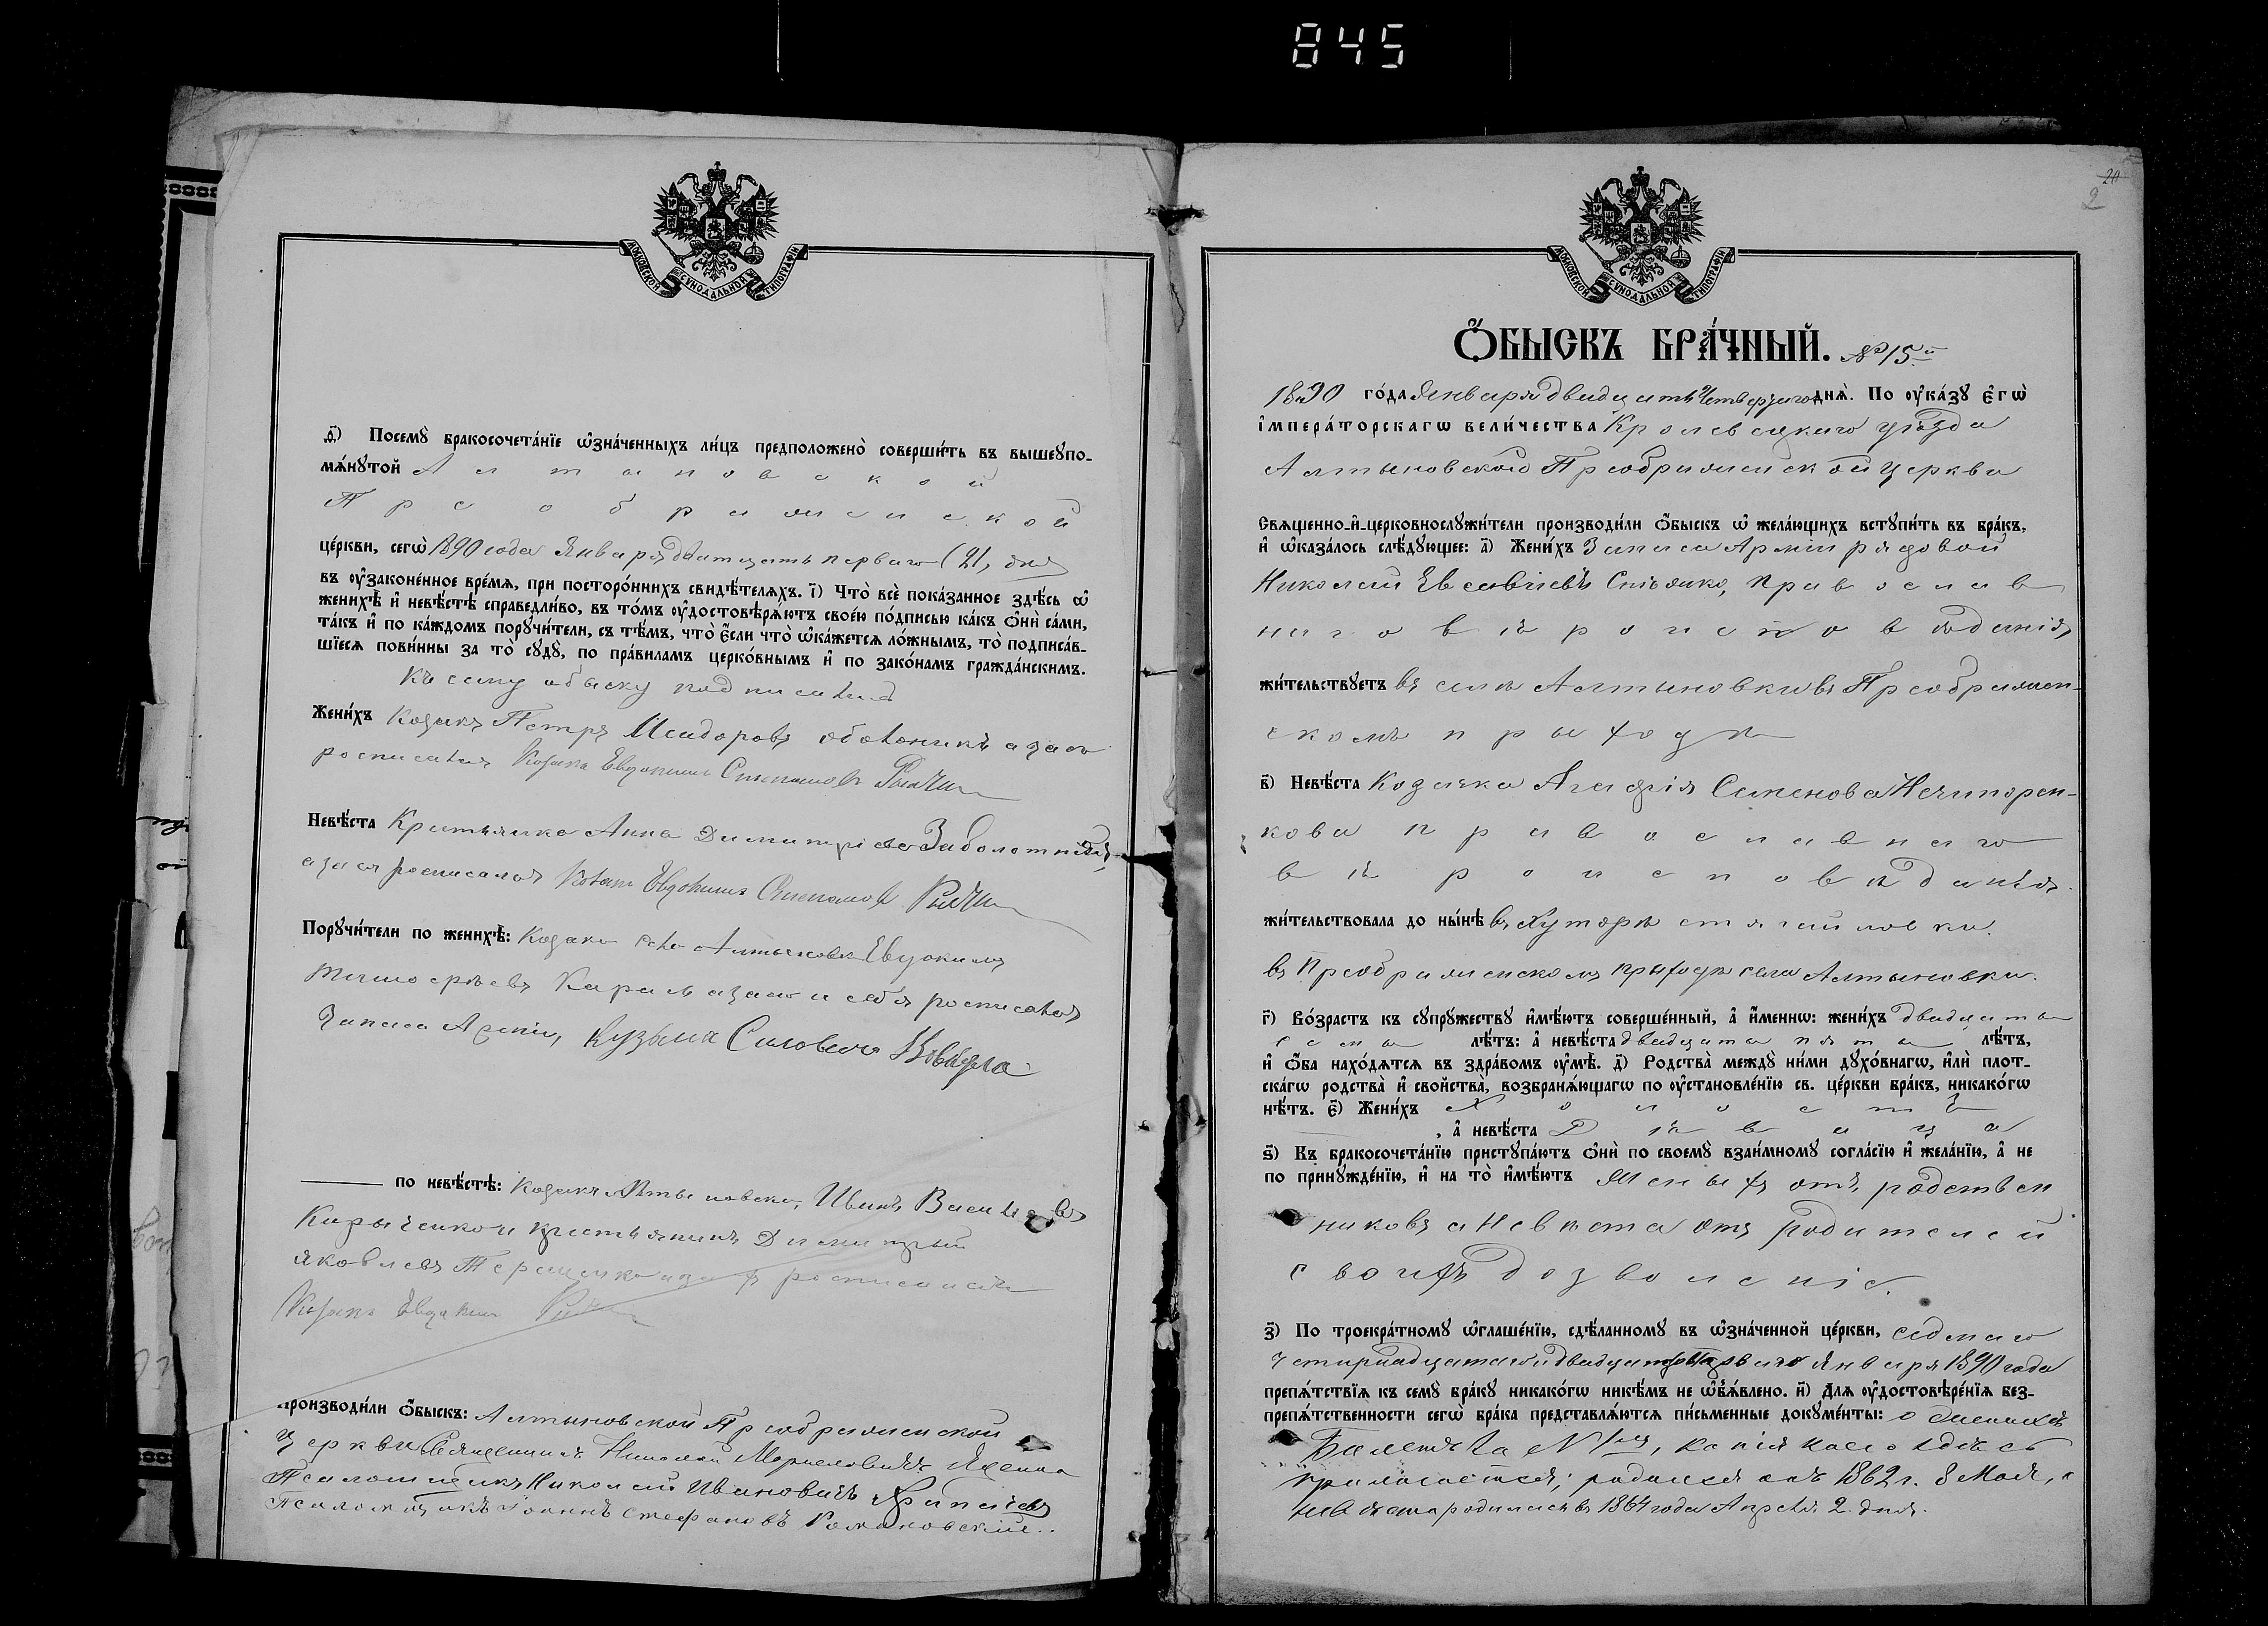 845
МОСКОВСКОЙ СѴНОДАЛЬНОЙ ТИПОГРАФІИ
Посемꙋ̀ бракосочета́нїе ѡ҆зна́ченныхъ ли́цъ предположено̀ соверши́ть въ вышеꙋпо-
мѧ́нꙋтой Алтыновской
Преображенской
це́ркви, сегѡ̀ 1890 года Января дватцать перваго (21, дня
въ ᲂу҆законе́нное вре́мѧ, при посторо́ннихъ свидѣ́телѧхъ. і҃) Что̀ всѐ пока́занное здѣ́сь ѡ҆
женихѣ̀ и҆ невѣ́стѣ справедли́во, въ то́мъ ᲂу҆достовѣрѧ́ютъ свое́ю по́дписью ка́къ ѻ҆нѝ са́ми,
та́къ и҆ по ка́ждомъ порꙋчи́тели, съ тѣ́мъ, что̀ є҆́сли что̀ ѡ҆ка́жетсѧ ло́жнымъ, то̀ подписа́в-
шїесѧ пови́нны за то̀ сꙋдꙋ̀, по пра́виламъ церко́внымъ и҆ по зако́намъ гражда́нскимъ.
Къ сему обыску подписались
Жени́хъ Козакъ Петръ Исидоровъ
росписался Козакъ Евдокимъ Степановъ
Невѣ́ста Крестьянка Анна Димитріева Заболотняя,
росписался Козакъ Евдокимъ Степановъ
Порꙋчи́тели по женихѣ̀: Козаки села Алтыновки Евдокимъ
Тимофѣевъ и себя росписался
Запаса Арміи, Кузьма Силовичъ
по невѣ́стѣ: Козакъ Алтыновки, Иванъ Васильевъ
Кириченко и крестьянинъ Димитрій
Яковлевъ Терещенко
Козакъ Евдокимъ
Производи́ли ѻ҆́быскъ: Алтыновской Преображенской
церкви Священникъ Николай Яценко
Псаломщикъ Николай Ивановичъ
Псаломщикъ Іоаннъ Стефановъ Романовскій.
20
2
МОСКОВСКОЙ СѴНОДАЛЬНОЙ ТИПОГРАФІИ
Ѻ҆́БЫСКЪ БРА́ЧНЫЙ. №15й
1890 го́да Января двадцать четвертаго днѧ̀. По ᲂу҆ка́зꙋ є҆гѡ̀
і҆мпера́торскагѡ вели́чества Кролевецкаго уѣзда
Алтыновской Преображенской церкви
Свѧще́нно-и҆-церковнослꙋжи́тели производи́ли ѻ҆́быскъ ѡ҆ жела́ющихъ встꙋпи́ть въ бра́къ,
и҆ ѡ҆каза́лось слѣ́дꙋющее: а҃) Жени́хъ Запаса Арміи рядовой
Николай Евсевіевъ православ
наго вѣроисповѣданія,
жи́тельствꙋетъ въ селѣ Алтыновки въ Преображен-
скомъ приходѣ
в҃) Невѣ́ста Козачка Агафія Семенова Нечипорен-
кова православнаго
вѣроисповѣданія.
жи́тельствовала до ны́нѣ въ Хуторѣ
въ Преображенскомъ приходѣ села Алтыновки.
г҃) Во́зрастъ къ сꙋпрꙋ́жествꙋ и҆мѣ́ютъ соверше́нный, а҆ и҆́меннѡ: жени́хъ двадцать
семь лѣ́тъ: а҆ невѣ́ста двадцать пять лѣ́тъ,
и҆ ѻ҆́ба нахо́дѧтсѧ въ здра́вомъ ᲂу҆мѣ̀. д҃) Родства̀ междꙋ̀ ни́ми дꙋхо́внагѡ, и҆лѝ плот-
ска́гѡ родства̀ и҆ свойства̀, возбранѧ́ющагѡ по ᲂу҆становле́нїю св. це́ркви бра́къ, никако́гѡ
нѣ́тъ. є҃) Жени́хъ Холостъ
, а҆ невѣ́ста Дѣвица
ѕ҃) Къ бракосочета́нїю пристꙋпа́ютъ ѻ҆нѝ по своемꙋ̀ взаи́мномꙋ согла́сїю и҆ жела́нїю, а҆ не
по принꙋжде́нїю, и҆ на то̀ и҆мѣ́ютъ Женихъ отъ родствен
никовъ а невѣста отъ родителей
своихъ дозволеніе.
з҃) По троекра́тномꙋ ѡ҆глаше́нїю, сдѣ́ланномꙋ въ ѡ҆зна́ченной це́ркви, седмаго
четырнадцатаго и двадцать перваго Января 1890 года
препѧ́тствїѧ къ семꙋ̀ бра́кꙋ никако́гѡ никѣ́мъ не ѡ҆б̾ѧ́влено. и҃) Длѧ ᲂу҆достовѣре́нїѧ без-
препѧ́тственности сегѡ̀ бра́ка представлѧ́ютсѧ пи́сьменные докꙋме́нты: о женихѣ
копія коего здѣсь
прилагается; родился онъ 1862 г. 8 Мая, а
невѣста родилась въ 1864 года Апреля 2. дня.